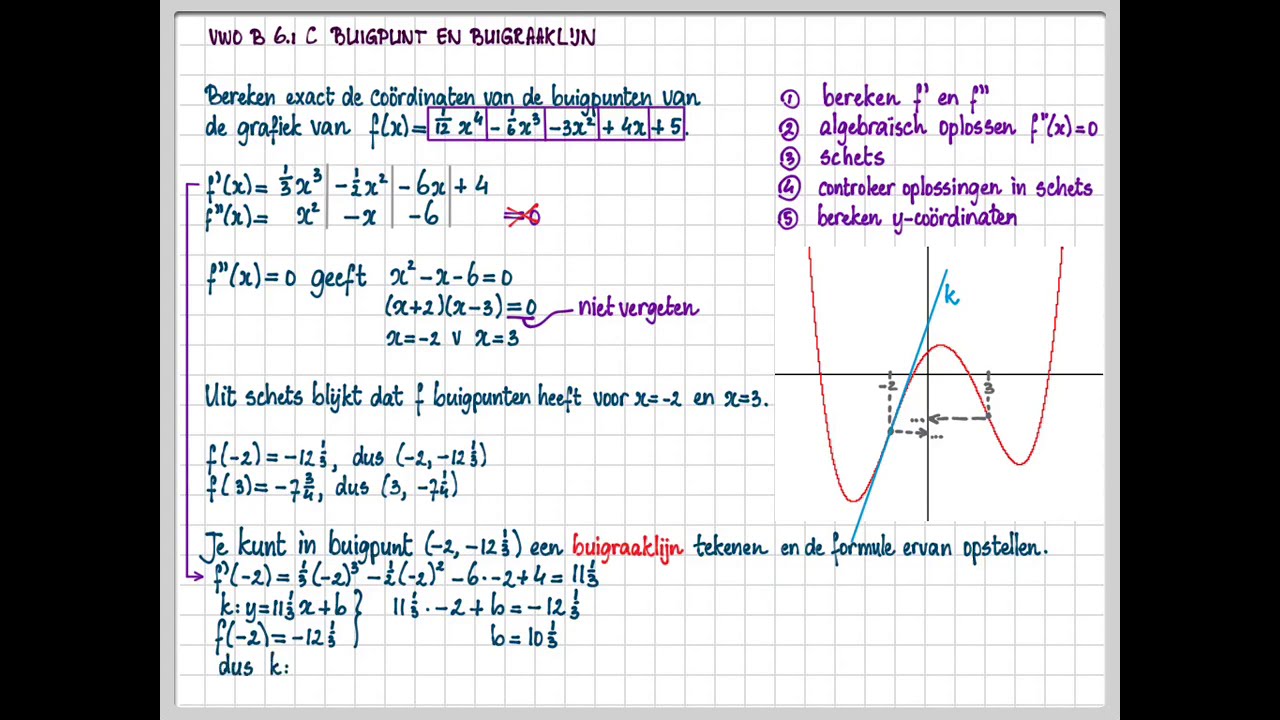 VWO B 6.1 C BUIGPUNT EN BUIGRAAKLIJN
Bereken exact de coördinaten van de buigpunten van
de grafiek van f(x) = 1/12 x⁴ - 1/6 x³ - 3x² + 4x + 5.
f'(x) = 1/3 x³ - 1/2 x² - 6x + 4
f"(x) = x² - x - 6 = 0
f"(x) = 0 geeft x² - x - 6 = 0
(x+2)(x-3) = 0 niet vergeten
x = -2 v x = 3
Uit schets blijkt dat f buigpunten heeft voor x = -2 en x = 3.
f(-2) = -12 1/3, dus (-2, -12 1/3)
f(3) = -7 3/4, dus (3, -7 1/4)
① bereken f' en f"
② algebraïsch oplossen f"(x) = 0
③ schets
④ controleer oplossingen in schets
⑤ bereken y-coördinaten
k
-2
3
...
...
Je kunt in buigpunt (-2, -12 1/3) een buigraaklijn tekenen en de formule ervan opstellen.
f'(-2) = 1/3 (-2)³ - 1/2 (-2)² - 6 · -2 + 4 = 11 1/3
k: y = 11 1/3 x + b } 11 1/3 · -2 + b = -12 1/3
f(-2) = -12 1/3 b = 10 1/3
dus k: